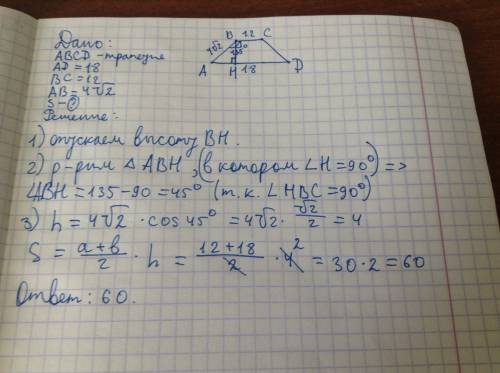 Дано:
ABCD - трапеция
AD = 18
BC = 12
AB = 4√2
S - ?
Решение:
4√2 B 12 C
A H 18 D
1) опускаем высоту BH.
2) р-рим △ ABH, (в котором ∠H = 90°) =>
∠ABH = 135 - 90 = 45° (т.к. ∠HBC = 90°)
3) h = 4√2 · cos 45° = 4√2 · √2/2 = 4
S = a+b/2 · h = 12+18/2 · 4 2 = 30 · 2 = 60
Ответ: 60.